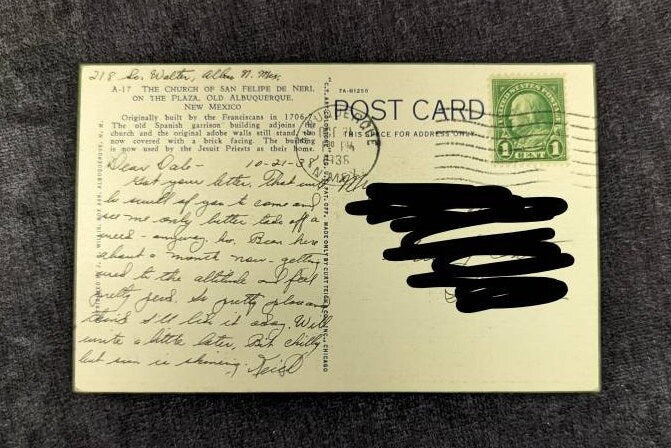 218 So. Walter, Albu N. Mex.
A-17 THE CHURCH OF SAN FELIPE DE NERI,
ON THE PLAZA, OLD ALBUQUERQUE,
NEW MEXICO
Originally built by the Franciscans in 1706.
The old Spanish garrison building adjoins the
church and the original adobe walls still stand,
now covered with a brick facing. The building
is now used by the Jesuit Priests as their home.
Dear Dab - 10-21-38
Got your letter. That will
be swell of you to come and
see me only better take off a
week - anyway. ha. Been here
about a month now - getting
used to the altitude and feel
pretty good. So pretty place
think I'll like it okay. Will
write a little later. Bit chilly
but sun is shining.
7A-H1250
POST CARD
THIS SPACE FOR ADDRESS ONLY
UNITED STATES POSTAGE
1 1
CENT